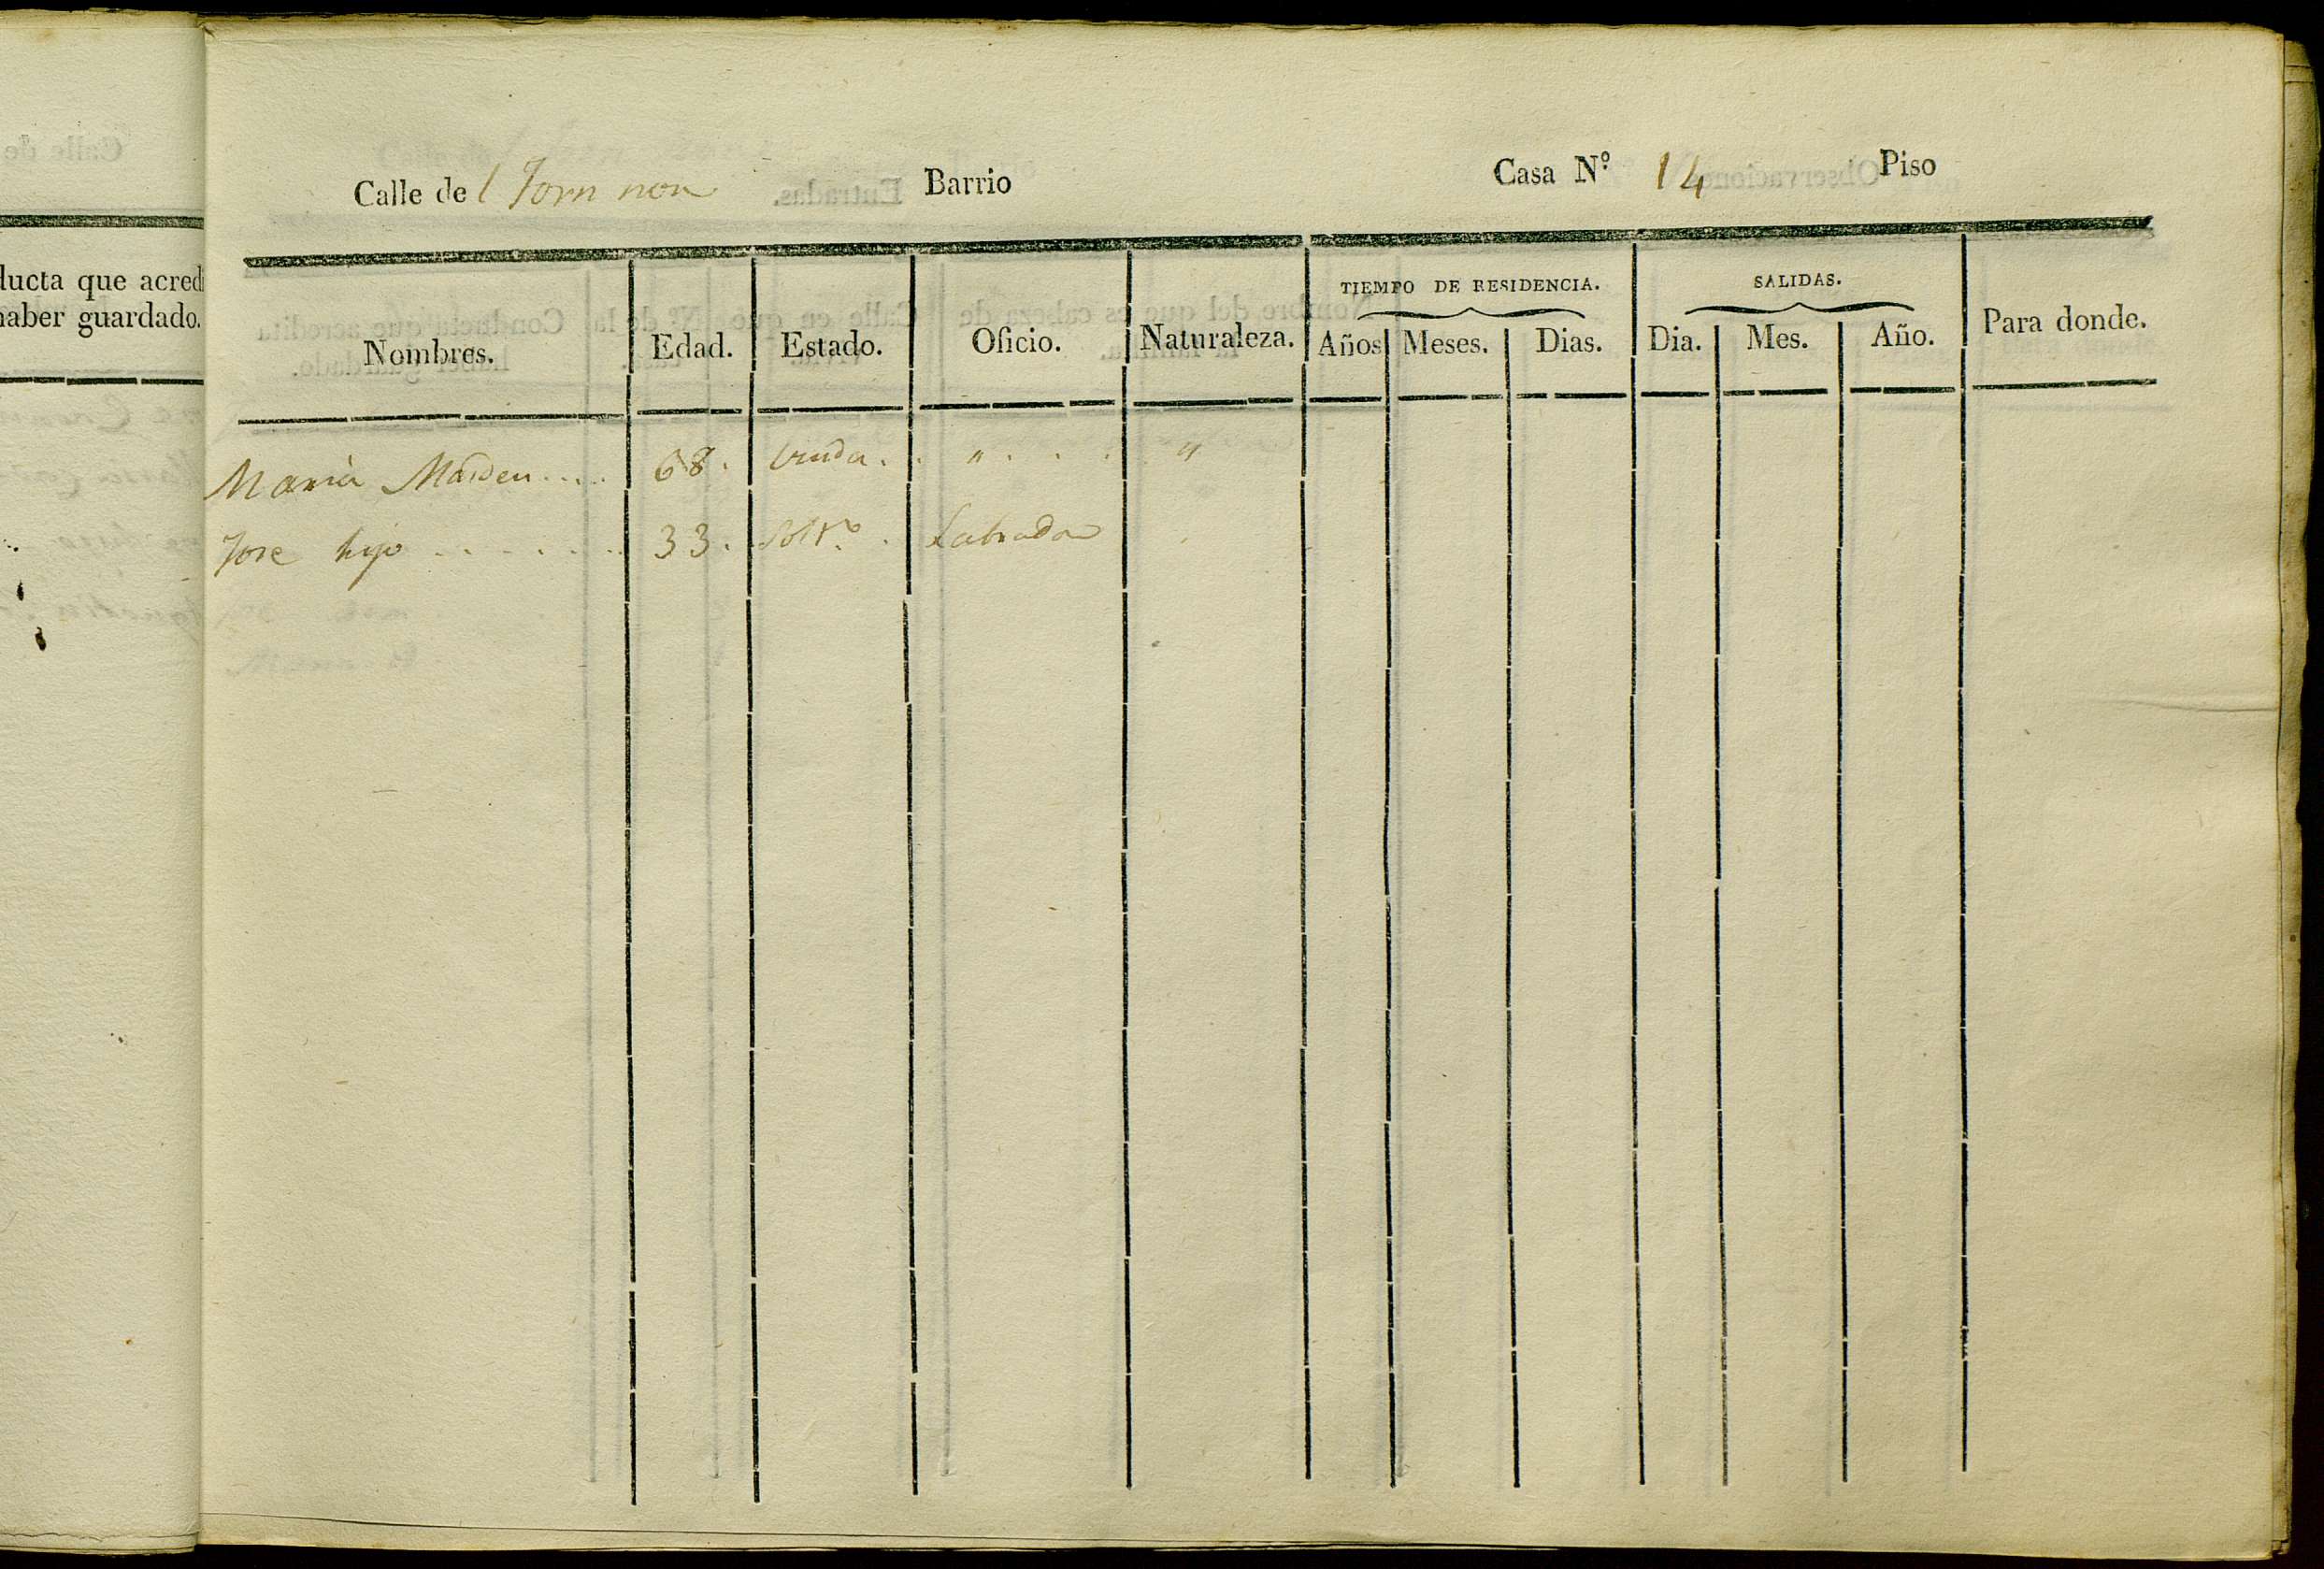 Calle del Forn nou Barrio Casa N.º 14 Piso
ducta que acredi
haber guardado.
TIEMPO DE RESIDENCIA. SALIDAS.
Nombres. Edad. Estado. Oficio. Naturaleza. Años Meses. Dias. Dia. Mes. Año. Para donde.
Maria .... 68. Viuda. . " . . . "
Jose hijo ....... 33. Solt.º . Labrador